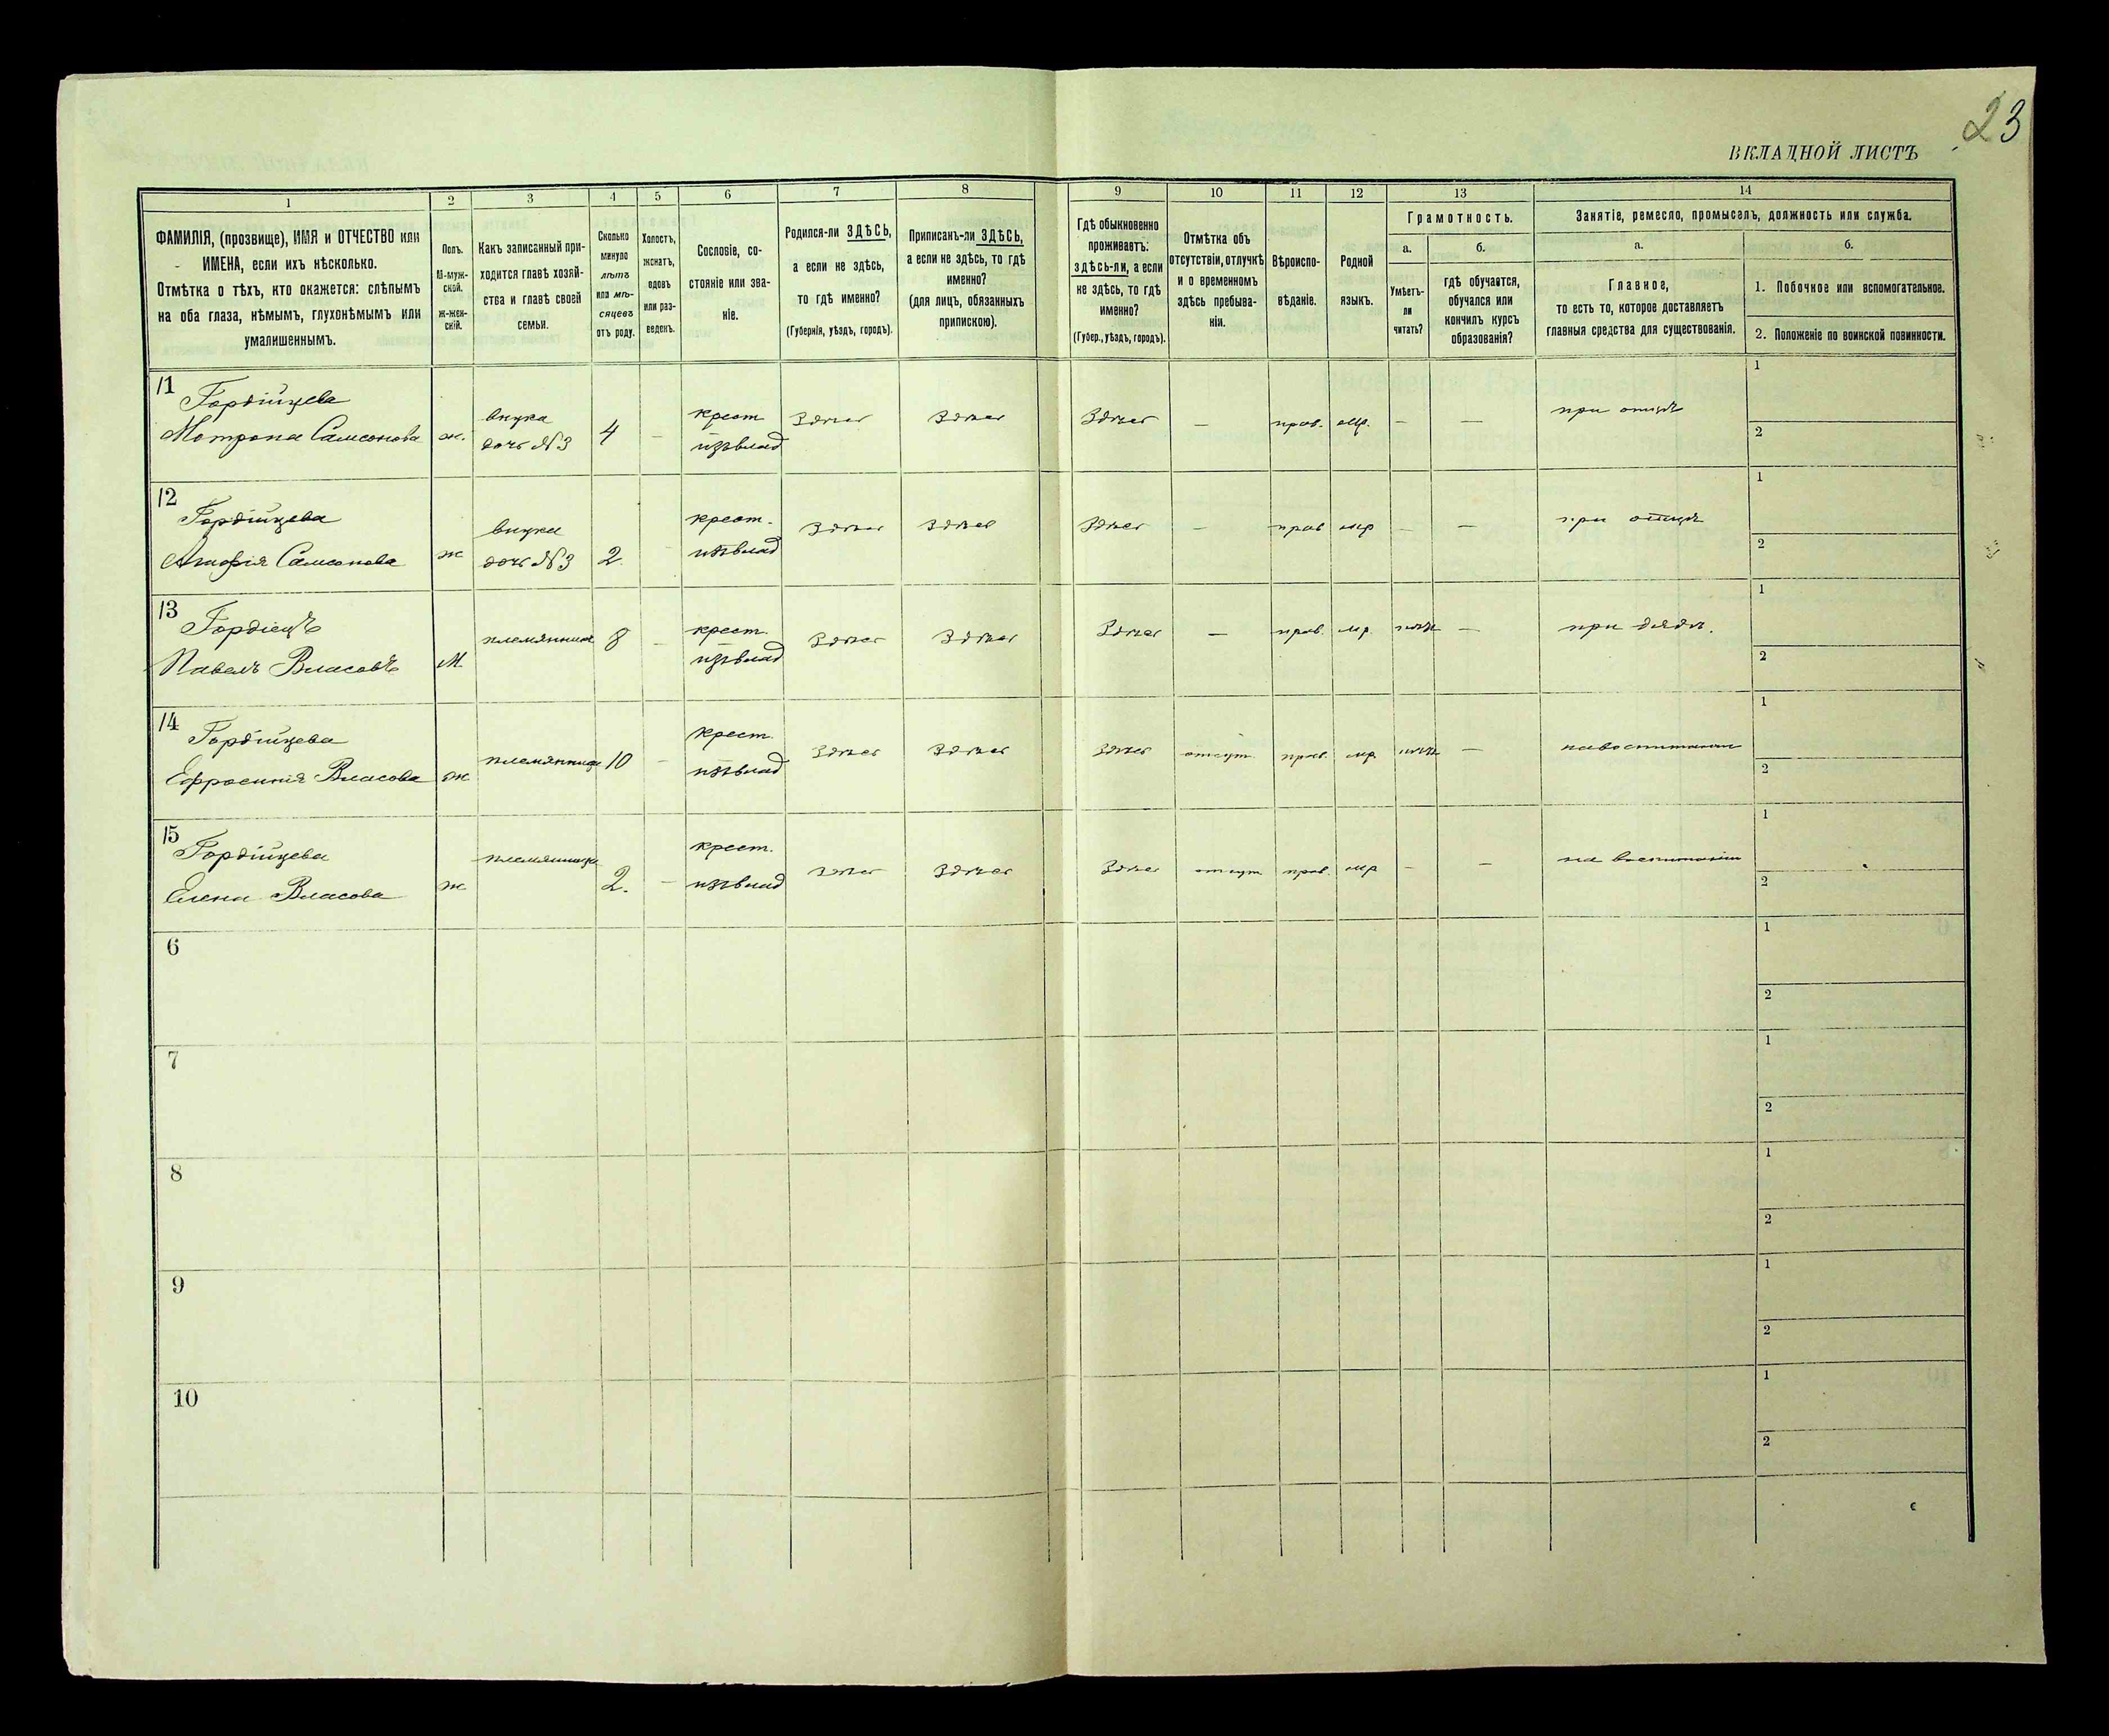 23
ВКЛАДНОЙ ЛИСТЪ
1 2 3 4 5 6 7 8 9 10 11 12 13 14
ФАМИЛІЯ, (прозвище), ИМЯ и ОТЧЕСТВО или
ИМЕНА, если ихъ нѣсколько.
Отмѣтка о тѣхъ, кто окажется: слѣпымъ
на оба глаза, нѣмымъ, глухонѣмымъ или
умалишеннымъ.
Полъ.
М-муж-
ской.
ж-жен-
скій.
Какъ записанный при-
ходится главѣ хозяй-
ства и главѣ своей
семьи.
Сколько
минуло
лѣтъ
или мѣ-
сяцевъ
отъ роду.
Холостъ,
женатъ,
вдовъ
или раз-
веденъ.
Сословіе, со-
стояніе или зва-
ніе.
Родился-ли ЗДѢСЬ,
а если не здѣсь,
то гдѣ именно?
(Губернія, уѣздъ, городъ).
Приписанъ-ли ЗДѢСЬ,
а если не здѣсь, то гдѣ
именно?
(для лицъ, обязанныхъ
припискою).
Гдѣ обыкновенно
проживаетъ:
здѣсь-ли, а если
не здѣсь, то гдѣ
именно?
(Губер., уѣздъ, городъ).
Отмѣтка объ
отсутствіи, отлучкѣ
и о временномъ
здѣсь пребыва-
ніи.
Вѣроиспо-
вѣданіе.
Родной
языкъ.
Грамотность.
а.
Умѣетъ-
ли
читать?
б.
гдѣ обучается,
обучался или
кончилъ курсъ
образованія?
Занятіе, ремесло, промыселъ, должность или служба.
а.
Главное,
то есть то, которое доставляетъ
главныя средства для существованія.
б.
1. Побочное или вспомогательное.
2. Положеніе по воинской повинности.
11
Гордійцева
Мотрона Самсонова
ж.
внука
дочь №3
4
–
крест
изъ влад
Здѣсь
Здѣсь
Здѣсь
—
прав.
мр.
–
—
при отцѣ
1
2
12
Гордійцева
Самсонова
ж
внука
дочь №3
2.
крест.
изъ влад
Здѣсь
Здѣсь
Здѣсь
—
прав
мр
–
—
при отцѣ
1
2
13
Гордіецъ
Павелъ Власовъ
М
племянникъ
8
–
крест.
изъ влад
Здѣсь
Здѣсь
Здѣсь
—
прав.
мр.
нѣтъ
—
при дядѣ.
1
2
14
Гордійцева
Ефросинія Власова
ж
племянница
10
–
крест.
изъ влад
Здѣсь
Здѣсь
Здѣсь
отсут
прав.
мр
нѣтъ
—
на воспитаніи
1
2
15
Гордійцева
Елена Власова
ж
племянница
2.
—
крест.
изъ влад
Здѣсь
Здѣсь
Здѣсь
отсут
прав.
мр
–
—
на воспитаніи
1
2
6
1
2
7
1
2
8
1
2
9
1
2
10
1
2